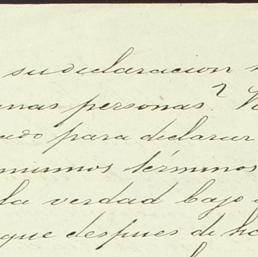 su declaracion
personas?
para declarar
mismos términos
la verdad bajo
que despues de